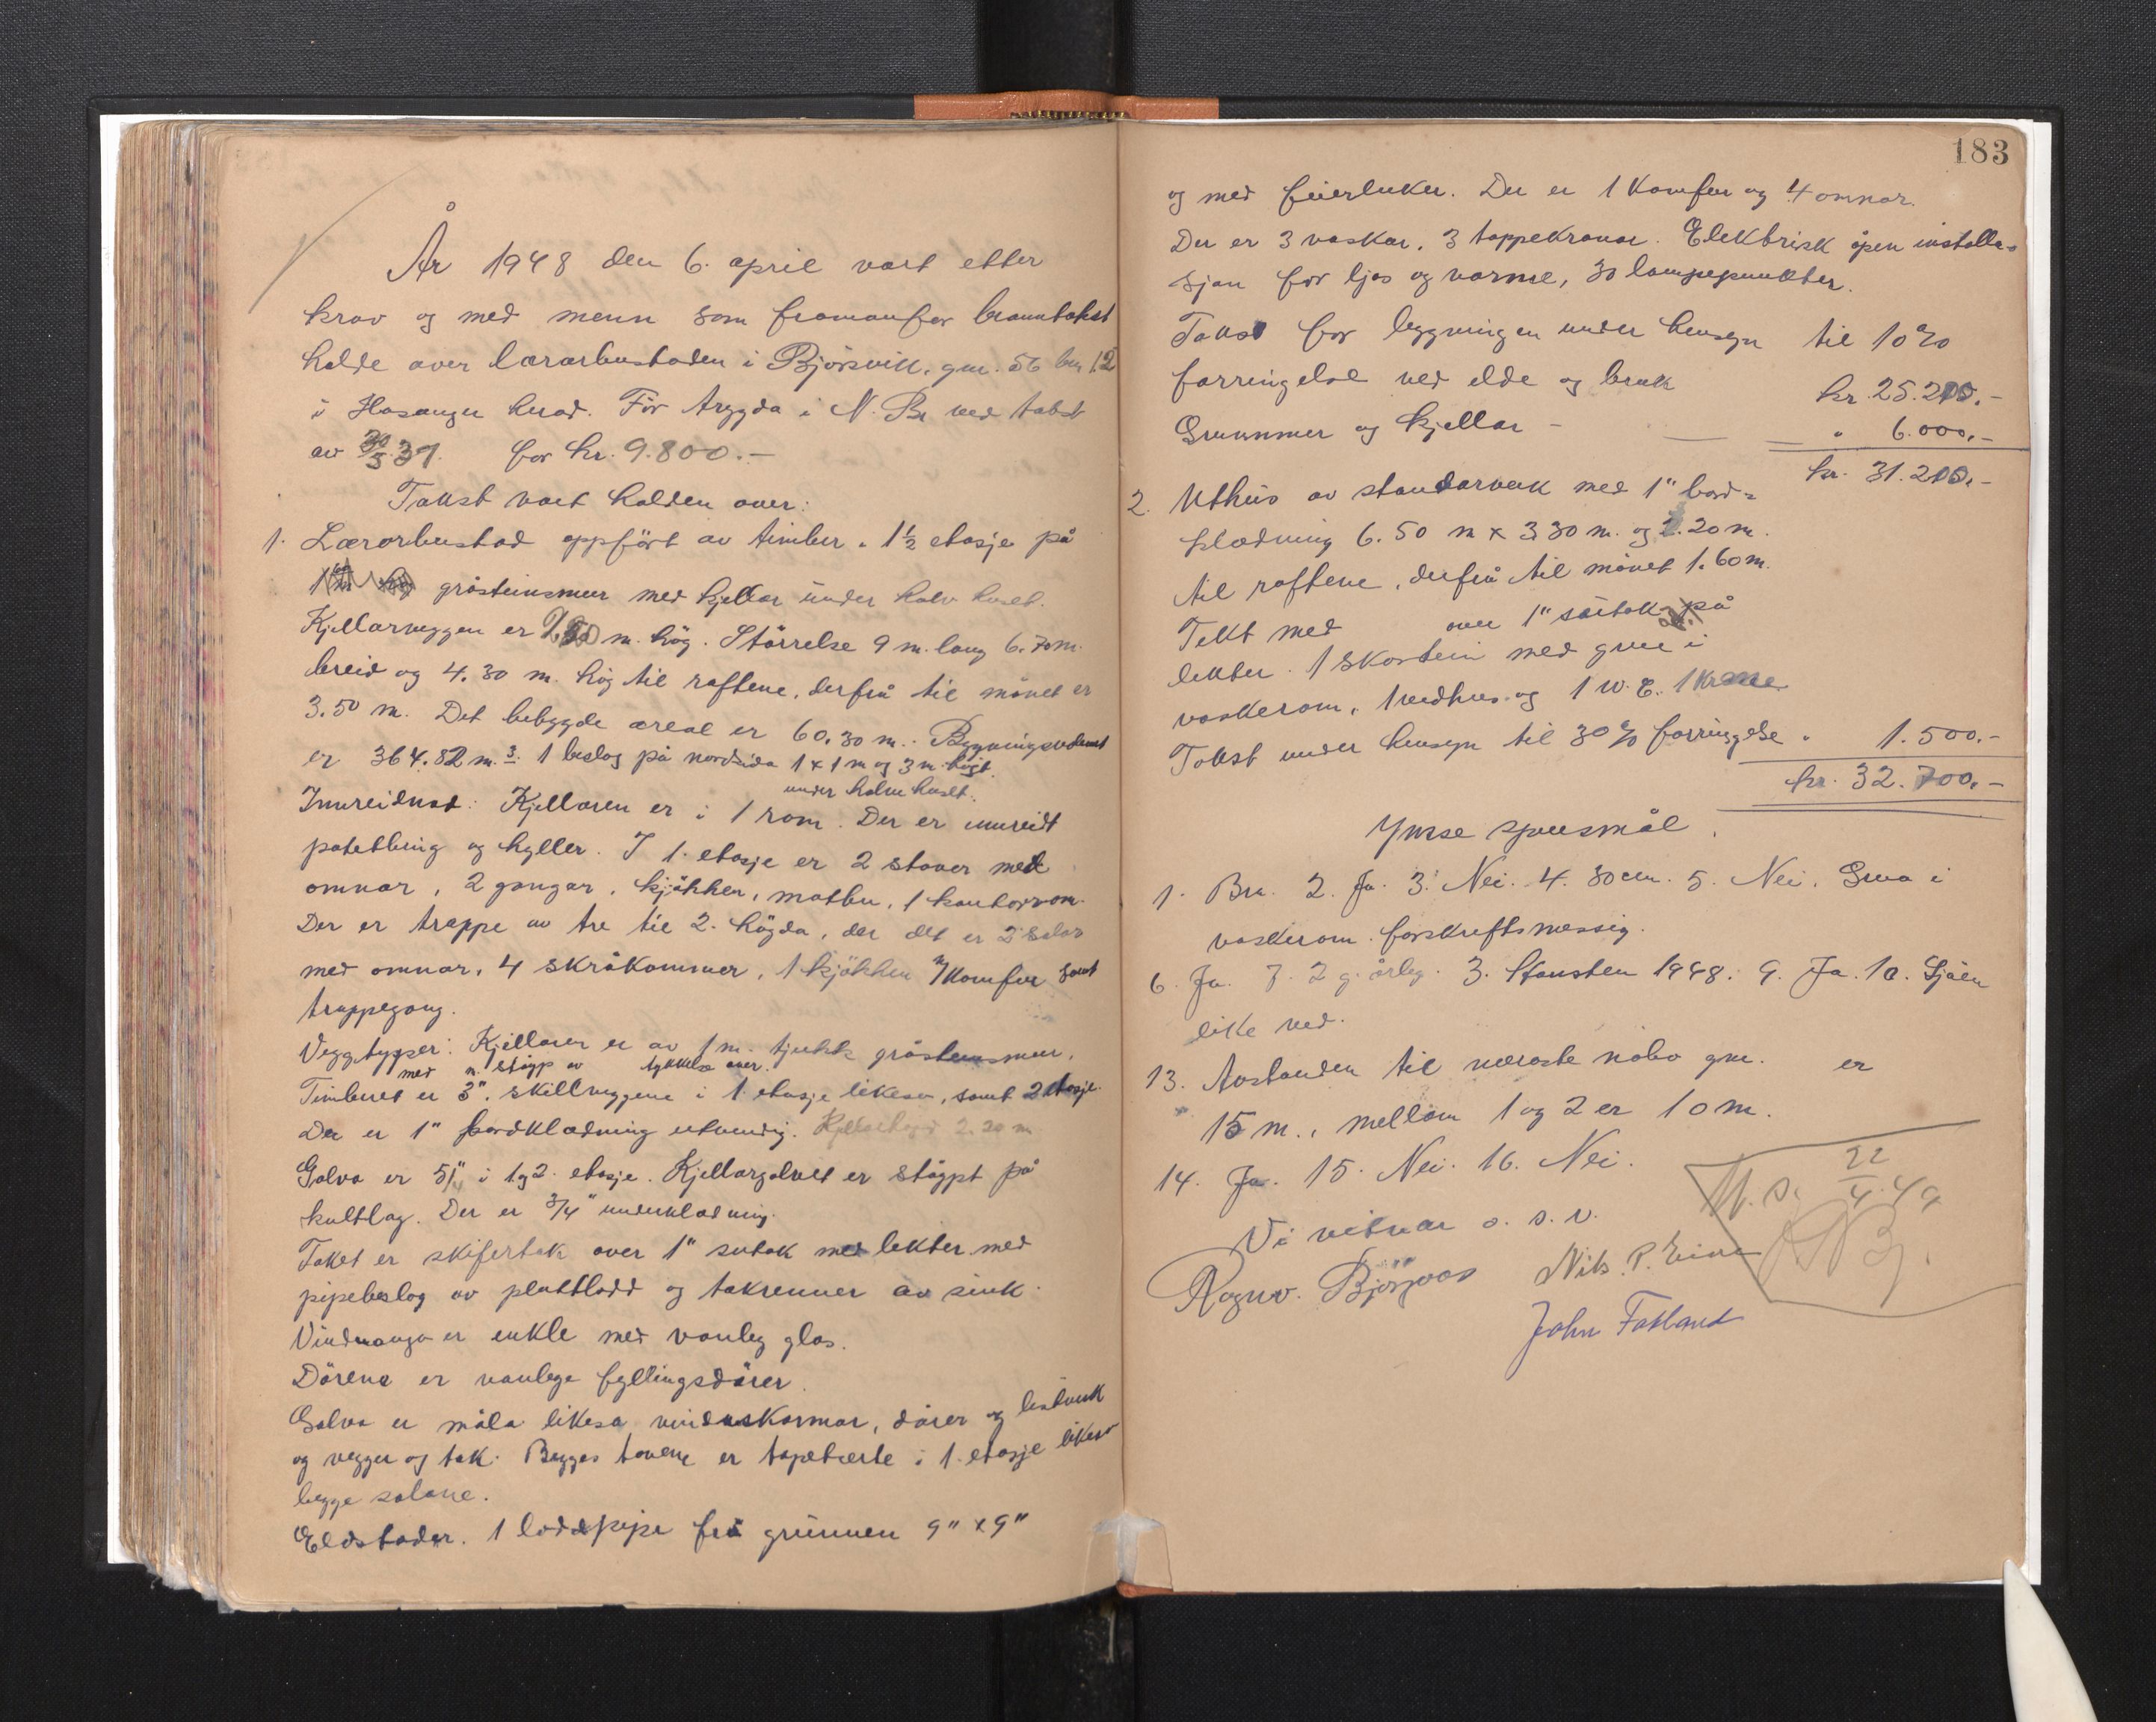 År 1948 den 6. april vart etter
krav og med menn som framanfor branntakst
halde over lærarbustaden i Bjørsvik, gnr. 56 bnr 12
i Hosanger herad. Før trygda i N. Br ved takst
av 20/5.37. for kr. 9.800.-
Takst vart halden over:
1. Lærarbustad oppført av timber. 1½ etasje på
gråsteinsmur med kjellar under halv huset.
Kjellarveggen er m. høg. Større​lse 9 m. lang 6.70 m.
breid og 4.30 m. høg til raftene, derfrå til mønet er
3.50 m. Det bebygde areal er 60.30 m. Bygningsvolumet
er 364.82 m.3. 1 beslag på nordsida 1 x 1 m og 3 m. høgt.
under halve huset.
Innreidnad: Kjellaren er i 1 rom. Der er innreidt
potetbing og hyller. I 1. etasje er 2 stover med
omnar, 2 gangar, kjøkken, matbu, 1 kontorrom.
Der er trappe av tre til 2. høgda, der det er 2 salar
med omnar, 4 skråkammer, 1 kjøkken m/komfur samt
trappegang.
Veggtyper: Kjellaren er av 1 m. tjukk gråsteinsmur,
med støyp av tykkelse over.
Timbret er 3". skilleveggene i 1. etasje likeso, samt 2 etasje.
Der er 1" bordklædning utvendig. Kjellarhøgd 2.20 m
Golva er 5/4" i 1 og 2. etasje. Kjellargolvet er støypt på
kultlag. Der er 3/4" underklædning.
Taket er skifertak over 1" sutak med lekter med
pipebeslag av plattlodd og takrenner av sink.
Vindauga er enkle med vanleg glas.
Dørene er vanlege fyllingsdører.
Golva er måla likeso vindaskarmar, dører og listverk
og vegger og tak. Begge stovene er tapetserte i 1. etasje likeso
begge salane.
Eldstader. 1 loddpipe frå grunnen 9" x 9"
183
og med feierluker. Der er 1 komfur og 4 omnar.
Der er 3 vaskar, 3 tappekranar. Elektrisk åpen installa-
sjon for ljos og varme, 30 lampepunkter.
Takst for bygningen under hensyn til 10%
forringelse ved elde og bruk kr. 25.200.-
Grunnmur og kjellar - " 6.000.-
kr. 31.200.-
2. Uthus av standarverk med 1" bord-
klædning 6.50 m x 3.30 m. og 2.20 m.
til raftene, derfrå til mønet 1.60 m.
Tekt med over 1" sutak på
lekter. 1 skorstein med grue i
vaskerom, 1 vedhus og 1 W.C. 1 krane
Takst under hensyn til 30% forringelse " 1.500.-
kr. 32.700.-
Ymse spursmål.
1. Bra. 2. Ja. 3. Nei. 4. 30 cm. 5. Nei. Grua i
vaskerom forskriftsmessig.
6. Ja. 7. 2 g. årleg. 3. Hausten 1948. 9. Ja. 10. Sjøen
like ved.
13. Avstanden til næraste nabo gnr. er
15 m., mellom 1 og 2 er 10 m.
14. Ja. 15. Nei. 16. Nei.
Vi vitnar o.s.v.
Ragnv. Bjørgaas Nils. P. Eine
John Fatland
22/4.49